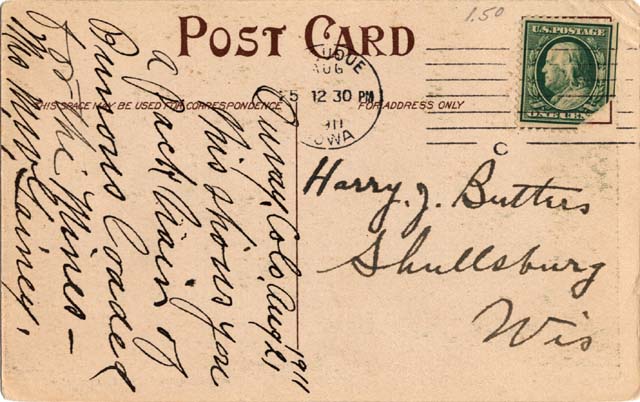 1.50
POST CARD
U.S. POSTAGE
UQUE
AUG
5 12 30 PM
1911
IOWA
THIS SPACE MAY BE USED FOR CORRESPONDENCE
FOR ADDRESS ONLY
Ouray, Colo, Aug 21, 1911
This shows you
a Pack Train of
Burrows Loaded
for the Mines –
Harry. J. Butters
Shullsburg
Wis